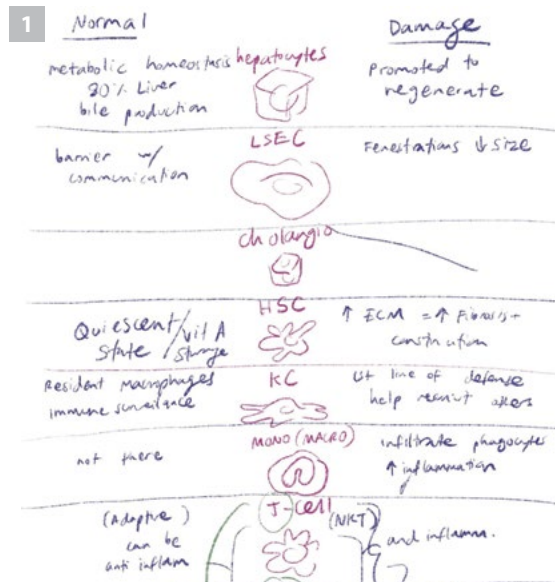 1
Normal
Damage
metabolic homeostasis
80% Liver
bile production
hepatocytes
Promoted to
regenerate
LSEC
barrier w/
communication
Fenestrations ↓ size
cholangio
HSC
Quiescent/vit A
State / Storage
↑ ECM = ↑ Fibrosis +
constriction
KC
Resident Macrophages
immune surveilance
1st line of defense
help recruit others
MONO (MACRO)
not there
infiltrate phagocytes
↑ inflammation
T-cell
(NKT)
(Adaptive)
can be
anti inflam
and inflamm.